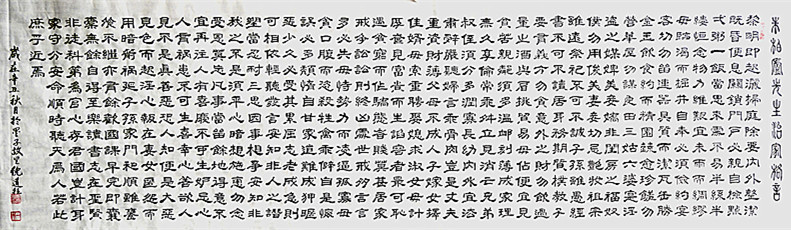 朱柏廬先生治家格言
黎明即起灑掃庭除要內外整潔
既昏便息關鎖門戶必親自檢點
弌粥一飯當思來處不易半絲半
縷恒念物力維艱宜未雨而綢繆
毋臨渴而掘井自奉必須儉約宴
客切勿留連器具質而潔瓦缶勝
金玉飲食約而精園蔬愈珍饈勿
營華屋勿謀良田三姑六婆實淫
盜之媒婢美妾嬌非閨房之福奴
僕勿用俊美妻妾切忌艷妝祖宗
雖遠祭祀不可不誠子孫雖愚經
書不可不讀居身務期質樸教子
要有義方勿貪意外之財勿飲過
量之酒與肩挑貿易毋佔便宜見
貧苦親鄰須加溫卹刻薄成家理
無久享倫常乖舛立見消亡兄弟
叔侄須分多潤寡長幼內外宜法
肅辭嚴聽婦言乖骨肉豈是丈夫
重資財薄父母不成人子嫁女擇
佳婿毋索重聘娶媳求淑女毋計
厚奩見富貴而生諂容者最可恥
遇貧窮而作驕態者賤莫甚居家
戒爭訟訟則終凶處世戒多言言
多必失毋恃勢力而凌逼孤寡毋
貪口腹而恣殺牲禽乖僻自是悔
誤必多頹惰自甘家道難成狎暱
惡少久必受其累屈志老成急則
可相依輕聽發言安知非人之譖
愬當忍耐三思因事相爭安知非
我之不是須平心暗想施惠勿念
受恩莫忘凡事當留餘地得意不
宜再往人有喜慶不可生妒忌心
人有禍患不可生喜幸心善欲人
見不是真善惡恐人知便是大惡
見色而起淫心報在妻女匿怨而
用暗箭禍延子孫家門和順雖饔
飧不繼亦有餘歡國課早完即囊
橐無餘自得至樂讀書志在聖賢
非徒科第為官心存君國豈計身
家守分安命順時聽天為人若此
庶乎近焉
歲在辛丑秋月於墨子故里